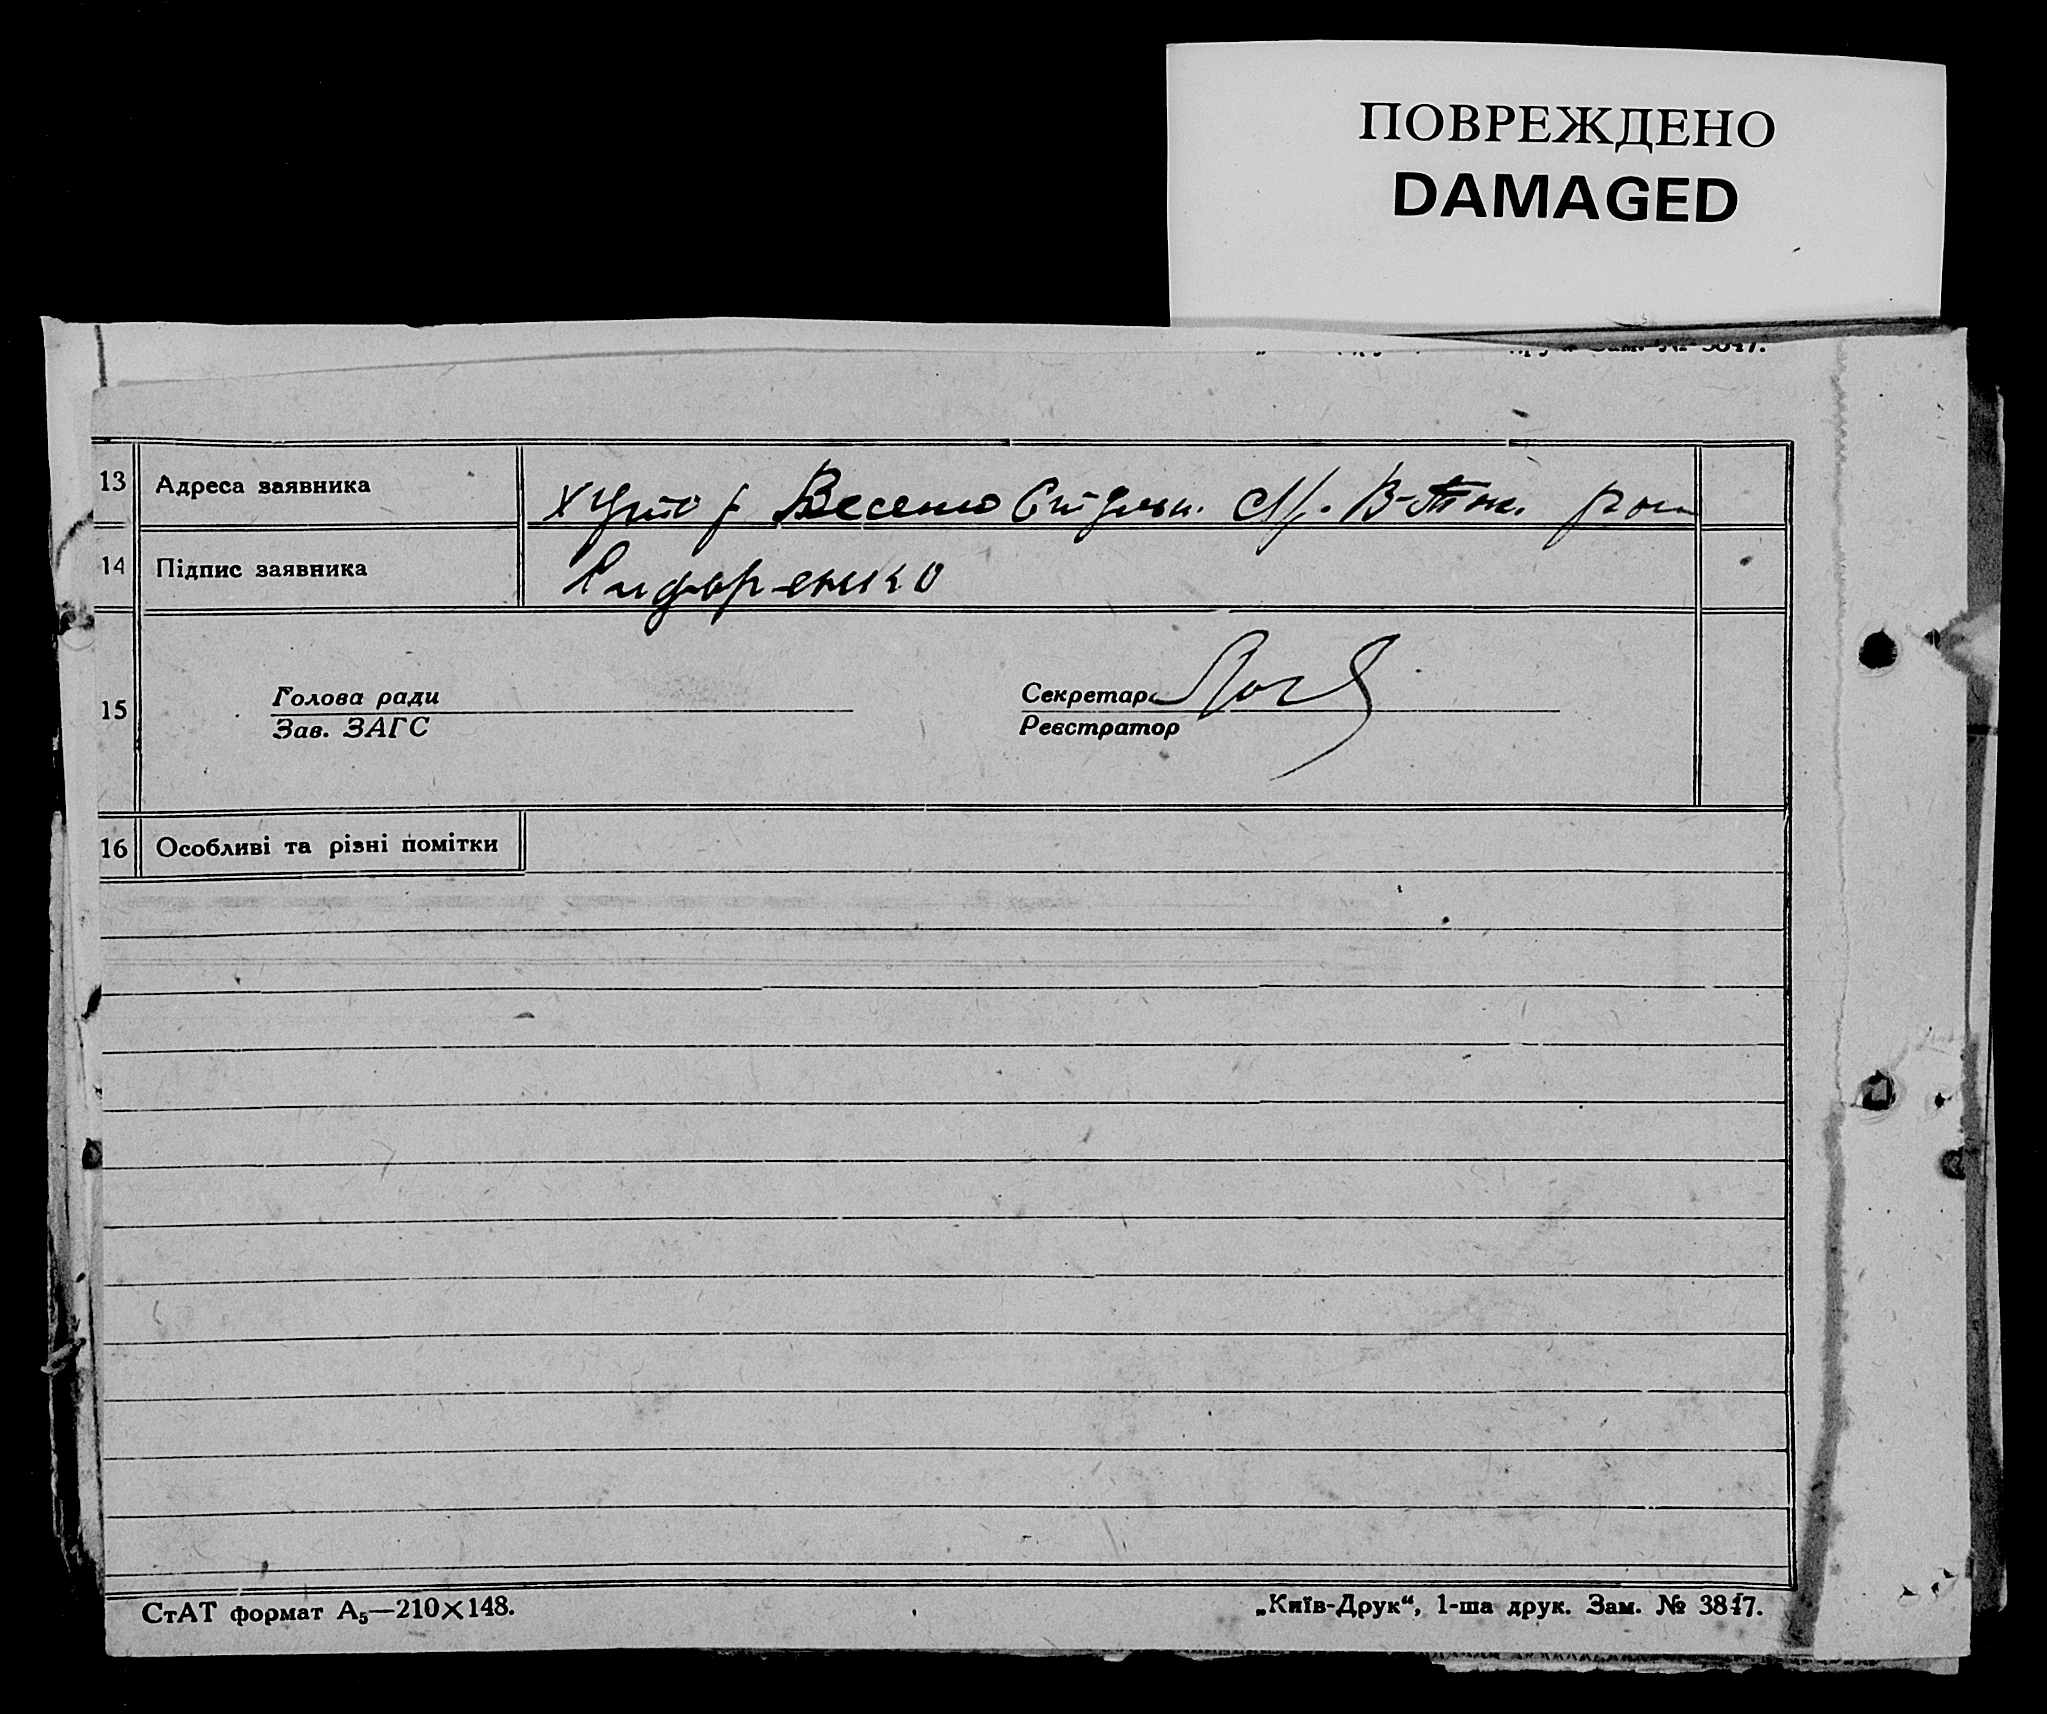 ПОВРЕЖДЕНО
DAMAGED
Зам. № 3847.
13 Адреса заявника хутор Весело
14 Підпис заявника
15 Голова ради Секретар
Зав. ЗАГС Реєстратор
16 Особливі та різні помітки
СтАТ формат А₅—210×148. „Київ-Друк“, 1-ша друк. Зам. № 3847.